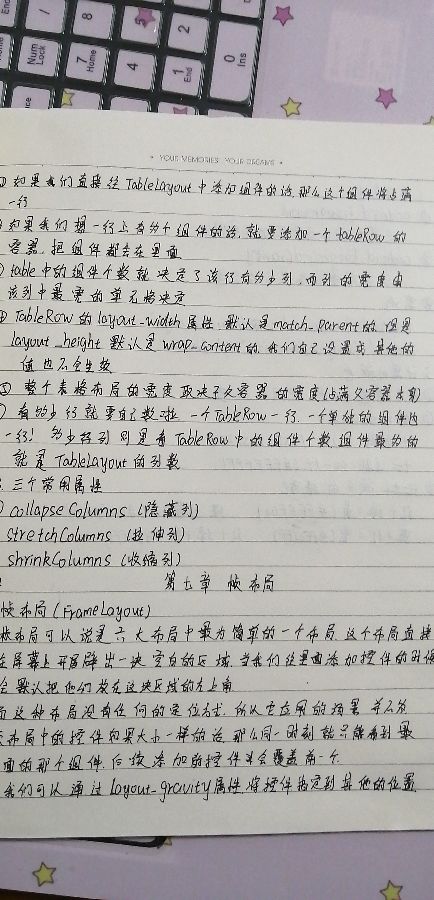 End
/
8
9
Num Lock
7 Home
4
1 End
2
0 Ins
• YOUR MEMORIES YOUR DREAMS •
① 如果我们直接往TableLayout中添加组件的话,那么这个组件将占满
一行
如果我们想一行上有多个组件的话,就要添加一个tableRow的
容器,把组件都丢在里面
table中的组件个数就决定了该行有多少列,而列的宽度由
该列中最宽的单元格决定
TableRow的layout_width属性,默认是match_parent的,但是
layout_height默认是wrap_content的,我们自己设置成其他的
值也不会生效
⑤ 整个表格布局的宽度取决于父容器的宽度(占满父容器本身)
有多少行就要自己数啦,一个TableRow一行,一个单独的组件也
一行! 多少列则是看TableRow中的组件个数,组件最多的
就是TableLayout的列数
三个常用属性
collapseColumns (隐藏列)
stretchColumns (拉伸列)
shrinkColumns (收缩列)
第七章 帧布局
帧布局(FrameLayout)
帧布局可以说是六大布局中最为简单的一个布局,这个布局直接
在屏幕上开辟出一块空白的区域,当我们往里面添加控件的时候
会默认把他们放在这块区域的左上角
而这种布局没有任何的定位方式,所以它应用的场景并不多
布局中的控件如果大小一样的话,那么同一时刻就只能看到最
面的那个组件,后续添加的控件会覆盖前一个
我们可以通过layout_gravity属性,将控件指定到其他的位置